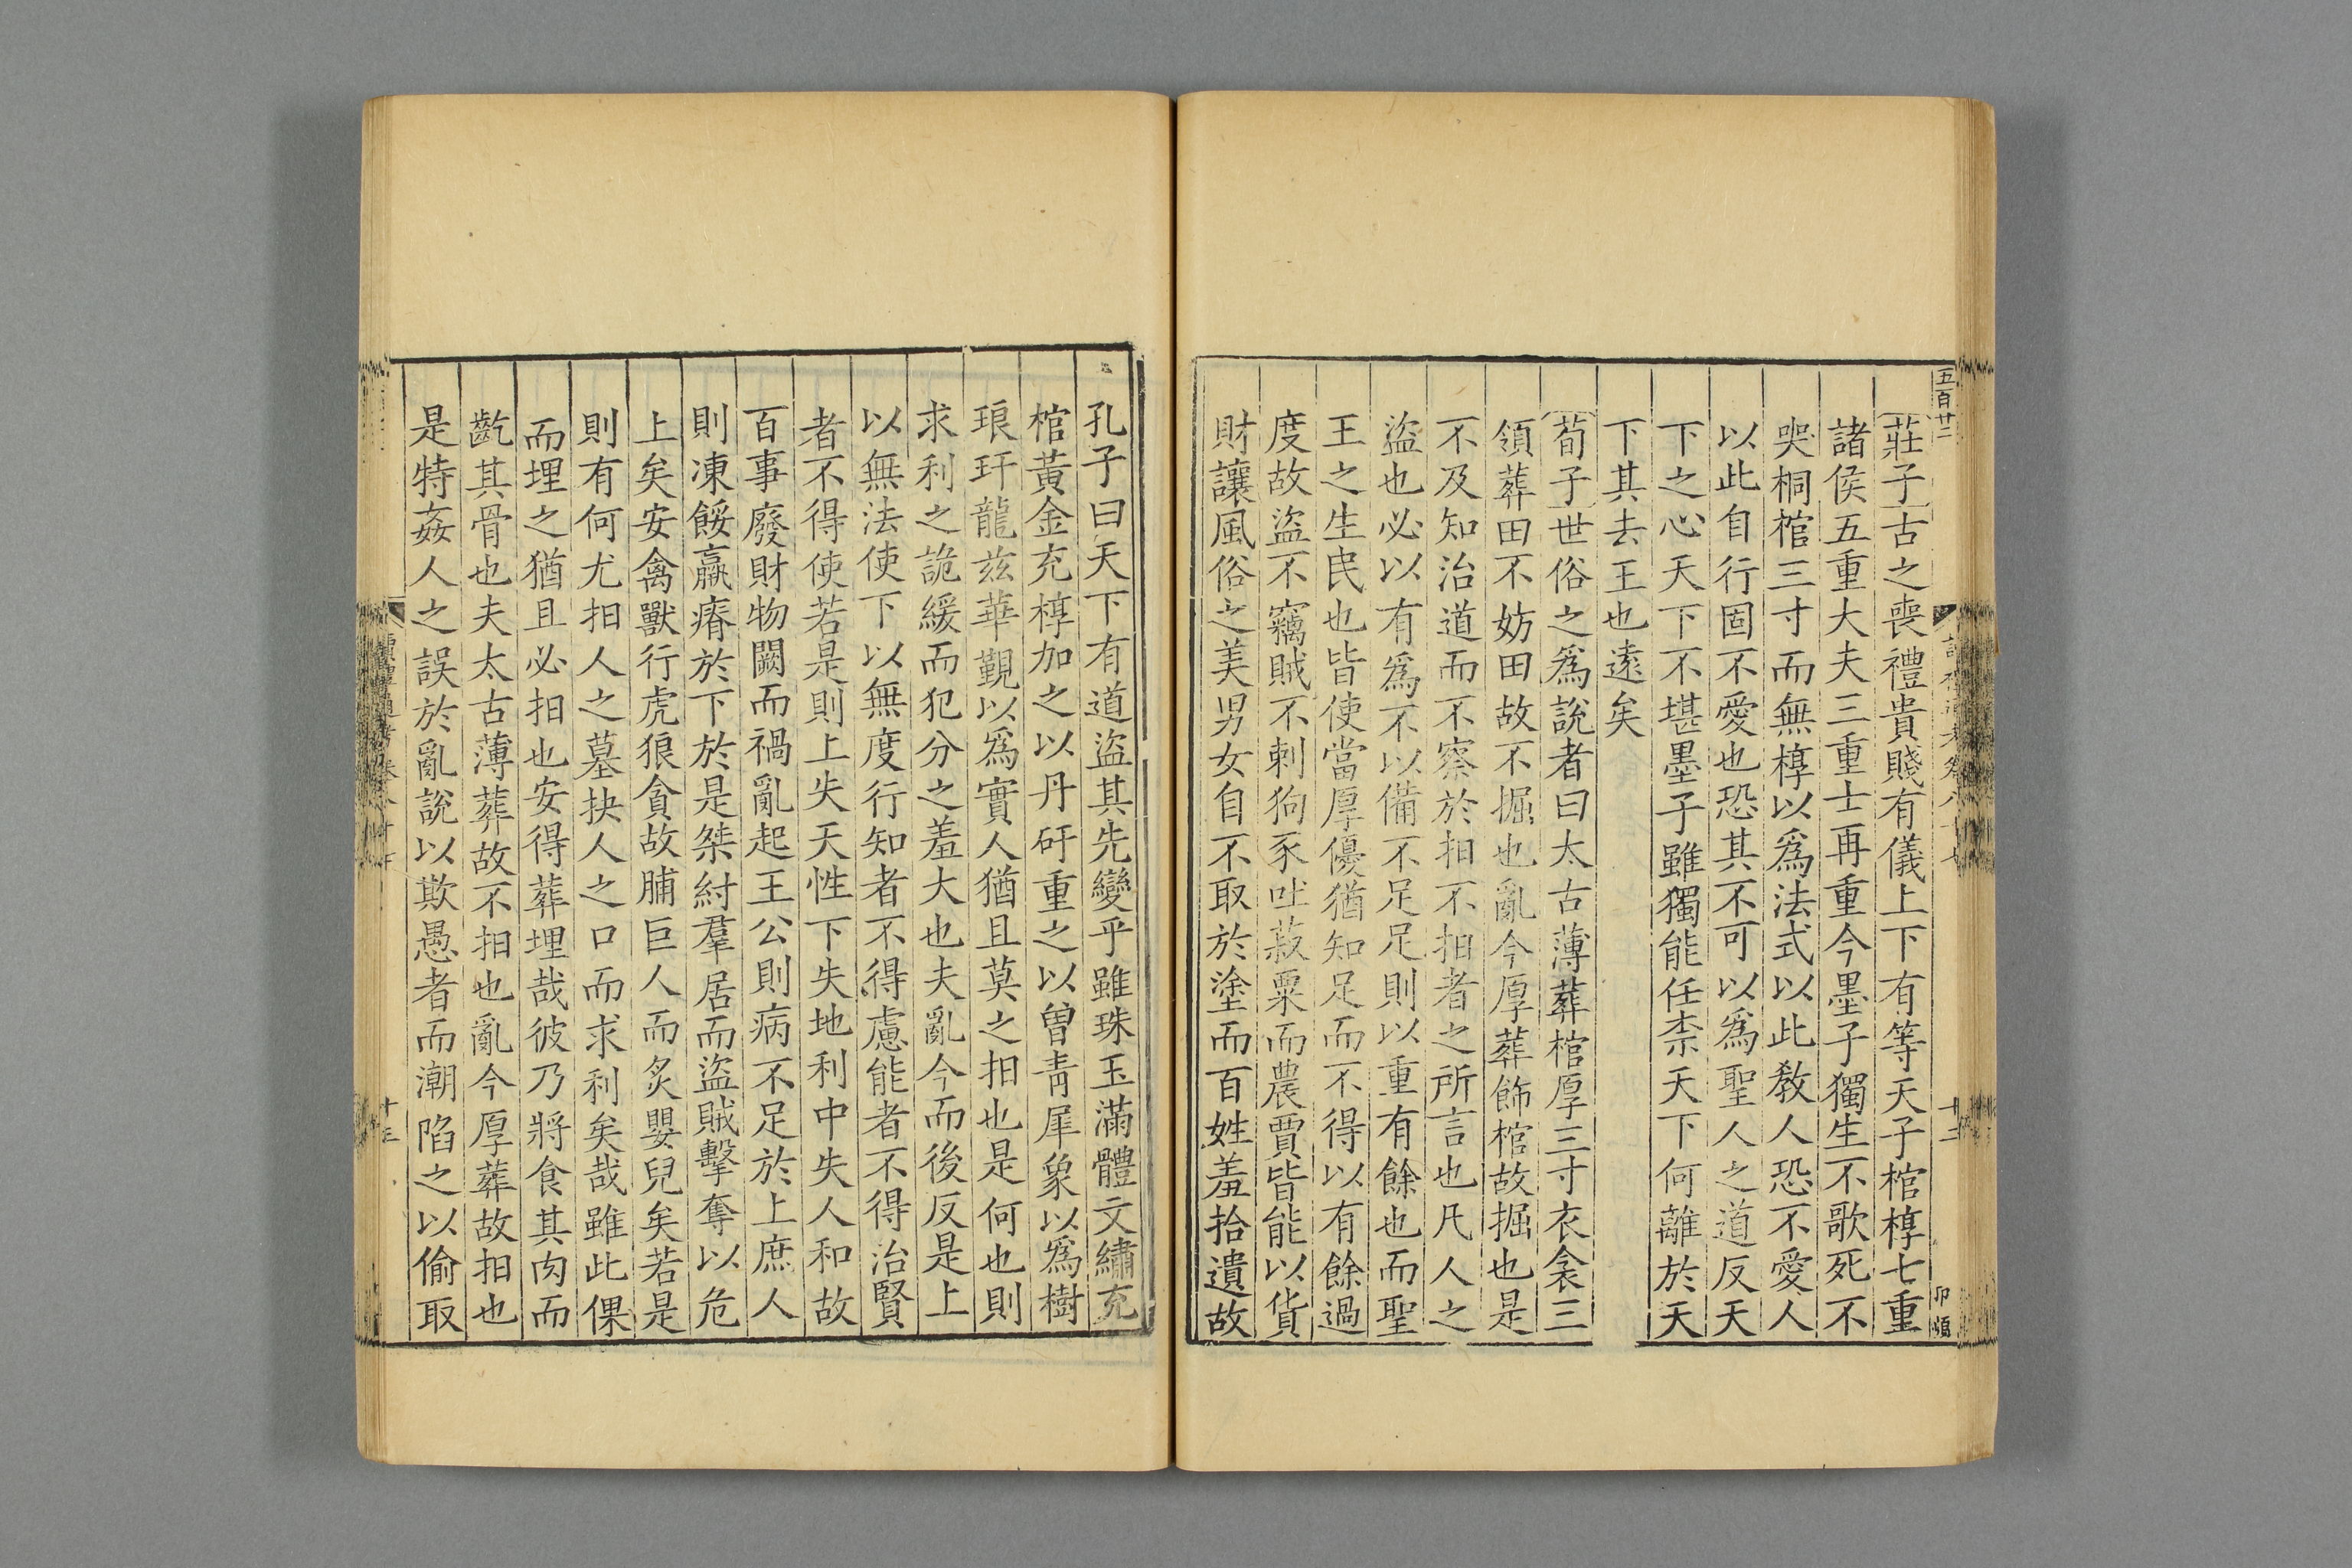 五百廿二
莊子古之喪禮貴賤有儀上下有等天子棺椁七重
諸侯五重大夫三重士再重今墨子獨生不歌死不
哭桐棺三寸而無椁以爲法式以此教人恐不愛人
以此自行固不愛也恐其不可以爲聖人之道反天
下之心天下不堪墨子雖獨能任柰天下何離於天
下其去王也遠矣
荀子世俗之爲說者曰太古薄葬棺厚三寸衣衾三
領葬田不妨田故不掘也亂今厚葬飾棺故掘也是
不及知治道而不察於抇不抇者之所言也凡人之
盜也必以有爲不以備不足足則以重有餘也而聖
王之生民也皆使當厚優猶知足而不得以有餘過
度故盜不竊賊不刺狗豕吐菽粟而農賈皆能以貨
財讓風俗之美男女自不取於塗而百姓羞拾遺故
孔子曰天下有道盜其先變乎雖珠玉滿體文繡充
棺黃金充椁加之以丹矸重之以曾青犀象以爲樹
琅玕龍兹華覲以爲實人猶且莫之抇也是何也則
求利之詭緩而犯分之羞大也夫亂今而後反是上
以無法使下以無度行知者不得慮能者不得治賢
者不得使若是則上失天性下失地利中失人和故
百事廢財物闕而禍亂起王公則病不足於上庶人
則凍餒羸瘠於下於是桀紂羣居而盜賊擊奪以危
上矣安禽獸行虎狼貪故脯巨人而炙嬰兒矣若是
則有何尤抇人之墓抉人之口而求利矣哉雖此倮
而埋之猶且必抇也安得葬埋哉彼乃將食其肉而
齕其骨也夫太古薄葬故不抇也亂今厚葬故抇也
是特姦人之誤於亂說以欺愚者而潮陷之以偷取
十三